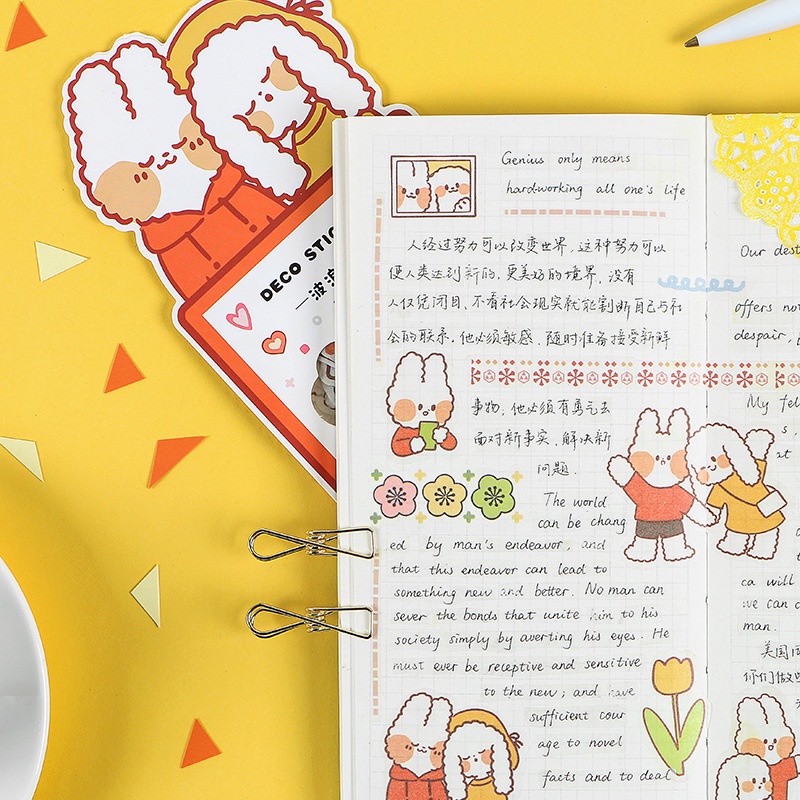 DECO STIC
一波
Genius only means
hard-working all one's life
人经过努力可以改变世界，这种努力可以
使人类达到新的、更美好的境界，没有
人仅凭闭目、不看社会现实就能割断自己与社
会的联系，他必须敏感、随时准备接受新鲜
事物，他必须有勇气去
面对新事实，解决新
问题.
The world
can be chang
ed by man's endeavor, and
that this endeavor can lead to
something new and better. No man can
sever the bonds that unite him to his
society simply by averting his eyes. He
must ever be receptive and sensitive
to the new; and have
sufficient cour
age to novel
facts and to deal
Our dest
offers no
despair,
My fel
s,
at
ca will
we can d
man.
美国
你们做